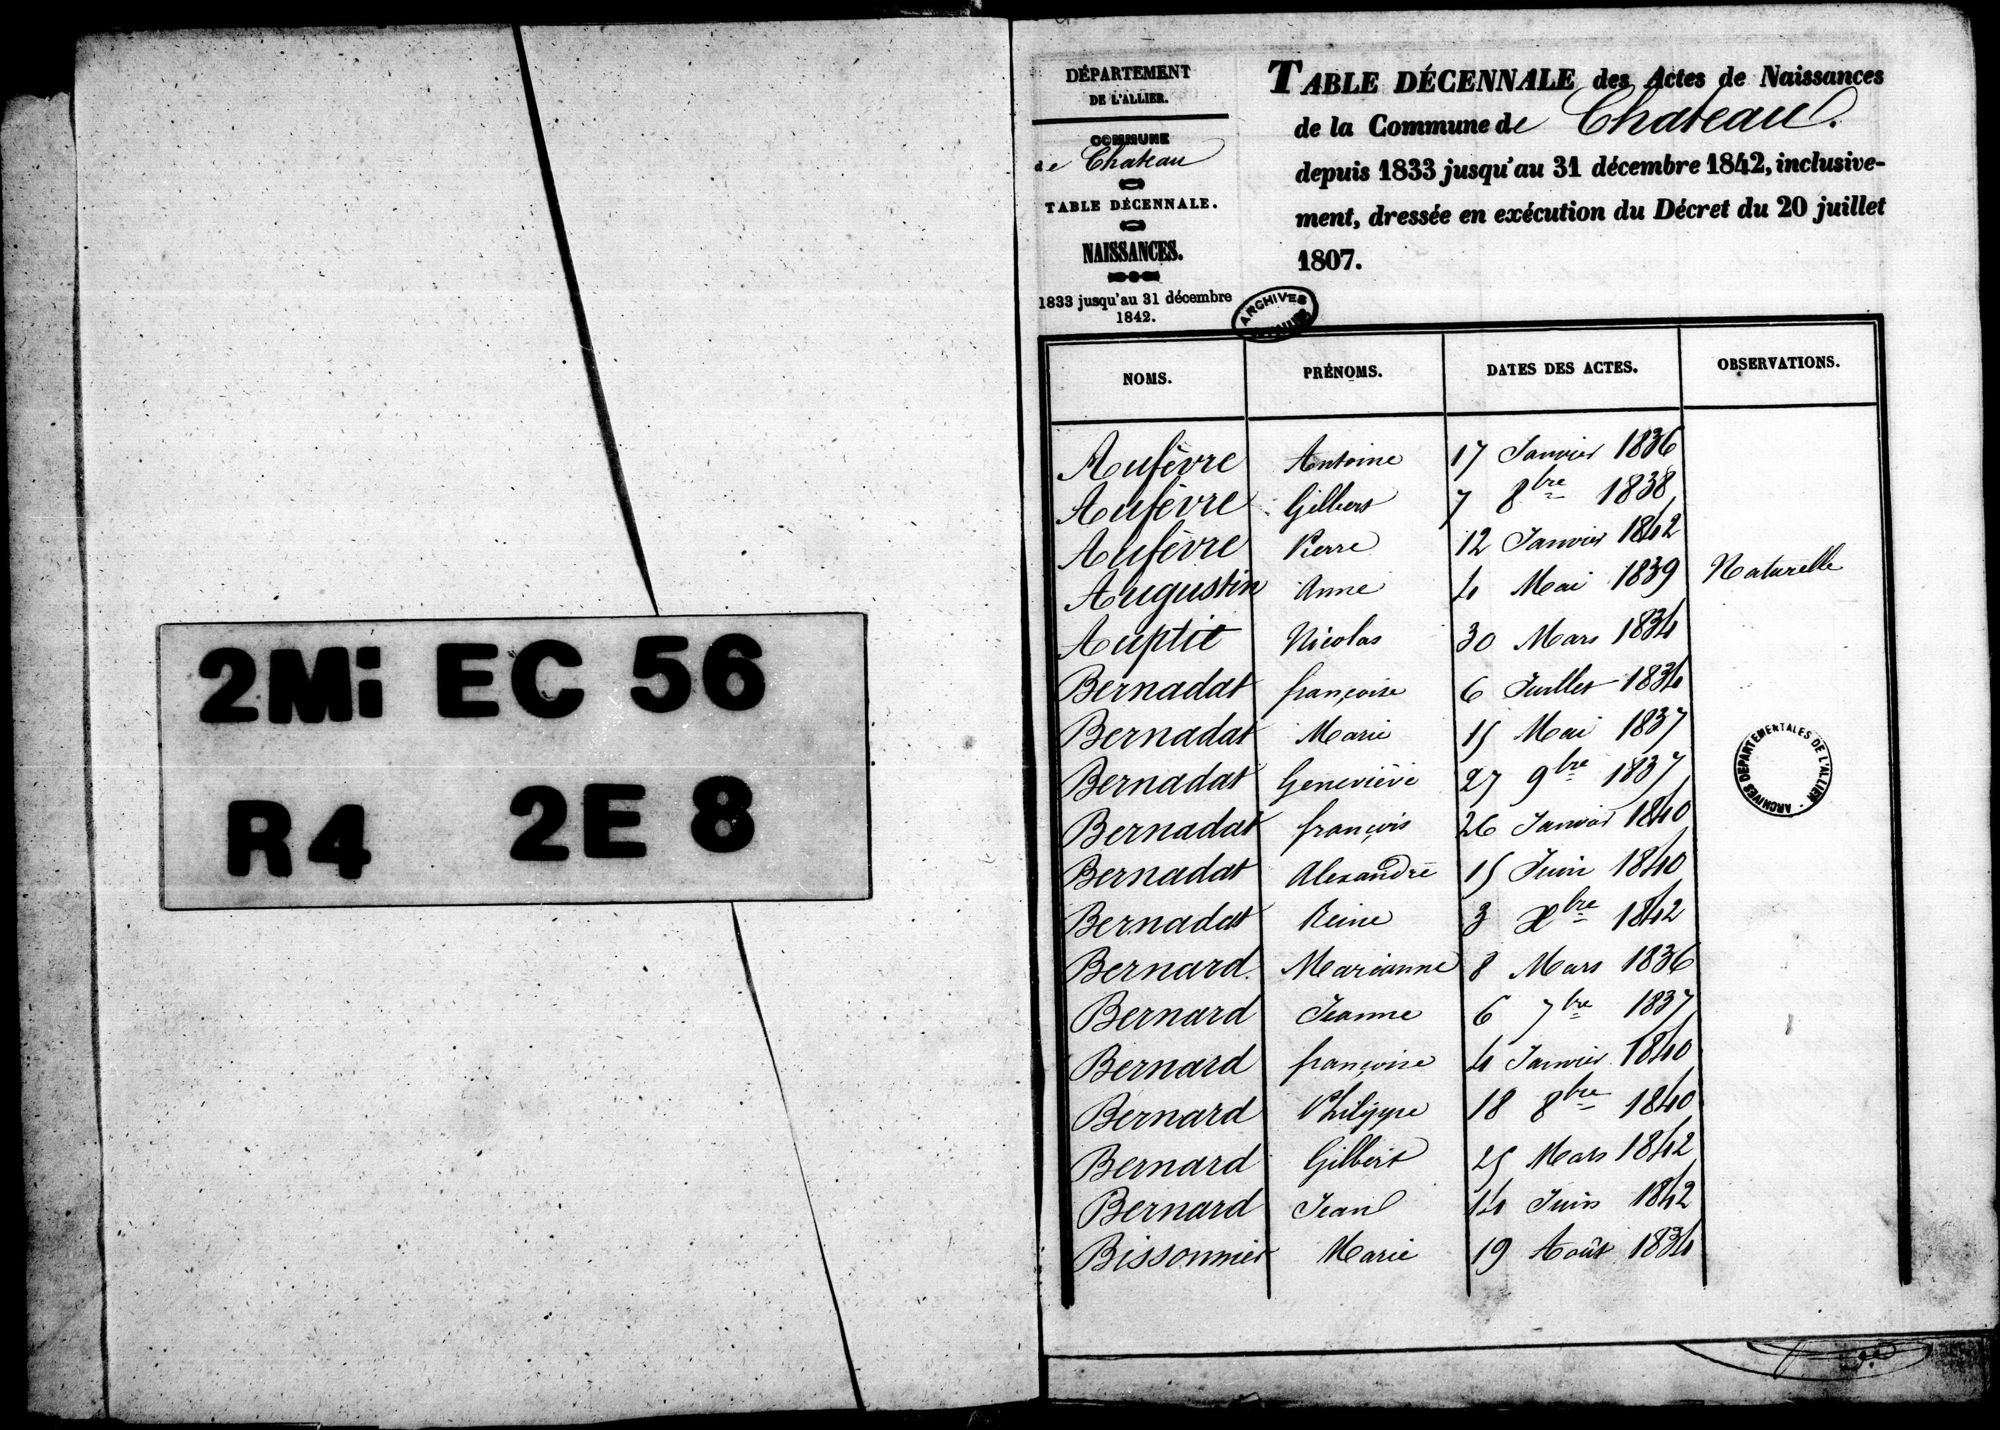 2Mi EC 56
R4 2E 8
DÉPARTEMENT
DE L'ALLIER.
COMMUNE
de Chateau
TABLE DÉCENNALE.
NAISSANCES.
1833 jusqu'au 31 décembre
1842.
TABLE DÉCENNALE des Actes de Naissances
de la Commune de Chateau.
depuis 1833 jusqu'au 31 décembre 1842, inclusive-
ment, dressée en exécution du Décret du 20 juillet
1807.
ARCHIVES
NOMS. PRÉNOMS. DATES DES ACTES. OBSERVATIONS.
Aufèvre Antoine 17 Janvier 1836
Aufèvre Gilbert 7 8bre 1838
Aufèvre Pierre 12 Janvier 1842
Augustin Anne 4 Mai 1839 Naturelle
Auptit Nicolas 30 Mars 1834
Bernadat françoise 6 Juillet 1834
Bernadat Marie 15 Mai 1837
Bernadat Geneviève 27 9bre 1837
Bernadat françois 26 Janvier 1840
Bernadat Alexandre 15 Juin 1840
Bernadat Reine 3 Xbre 1842
Bernard Marianne 8 Mars 1836
Bernard Jeanne 6 7bre 1837
Bernard françoise 4 Janvier 1840
Bernard Philippe 18 8bre 1840
Bernard Gilbert 25 Mars 1842
Bernard Jean 14 Juin 1842
Bissonnier Marie 19 Août 1834
ARCHIVES DÉPARTEMENTALES DE L'ALLIER